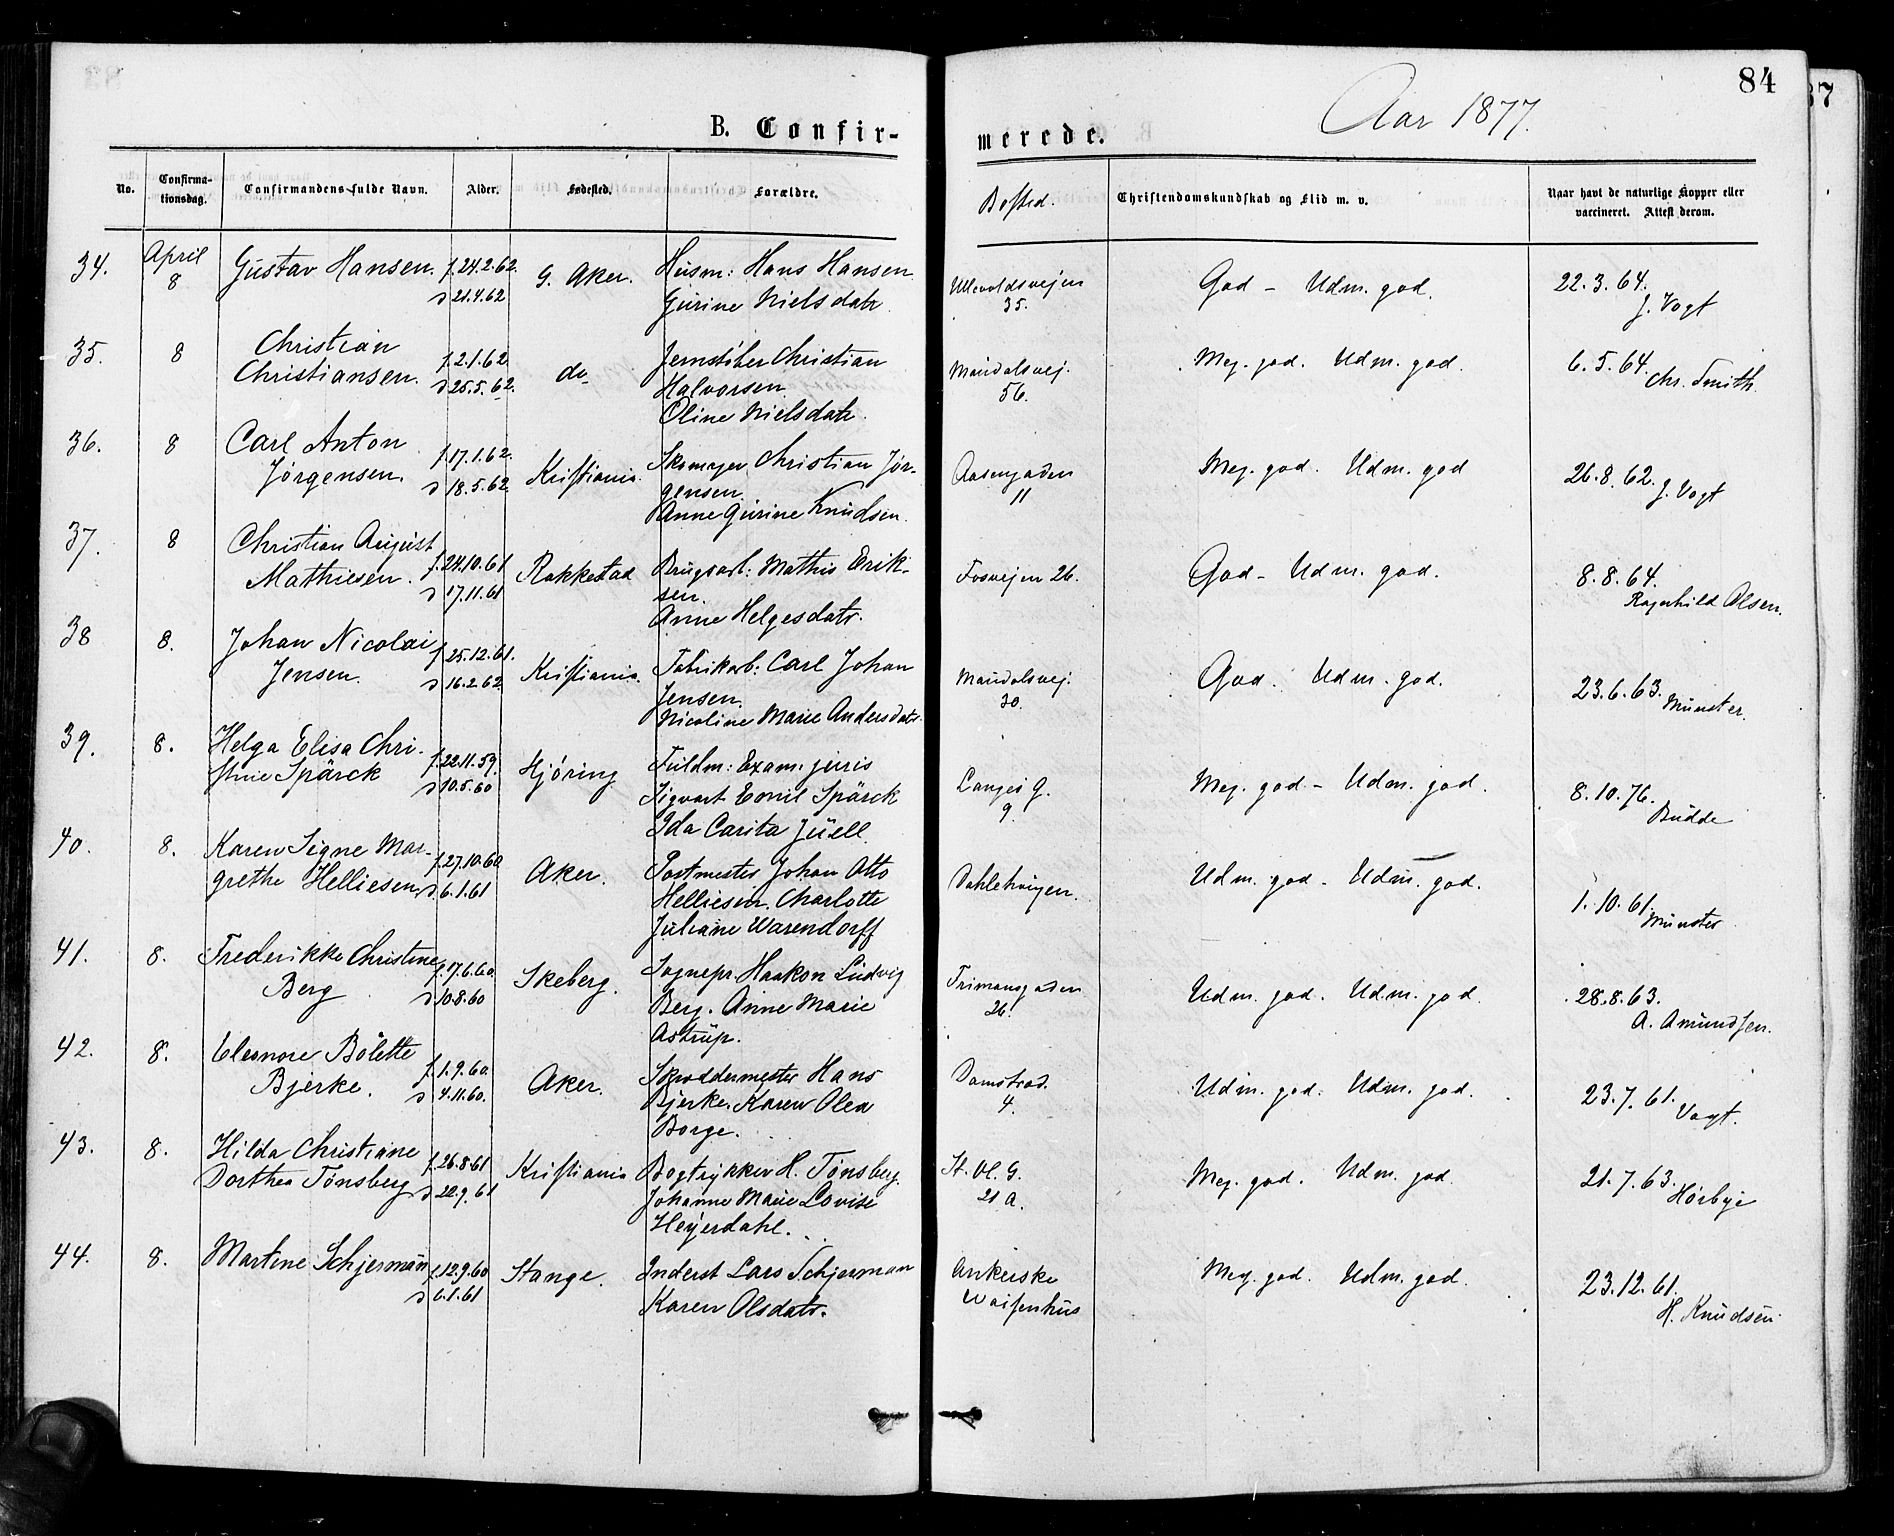 84
37
Aar 1877.
B. Confir-
merede.
No.
Confirma-
tionsdag.
Confirmandens fulde Navn.
Alder.
Fødested.
Forældre.
Bosted.
Christendomskundskab og Flid m. v.
Naar havt de naturlige Kopper eller
vaccineret. Attest derom.
34. April 8 Gustav Hansen. f. 24.2.62. G. Aker. Husm: Hans Hansen Ullevoldsvejen God - Udm. god. 22.3.64.
d 21.4.62 Gurine Nielsdatr. 35. J. Vogt
35. 8 Christian f. 2.1.62. do. Jernstøber Christian Maridalsvej. Meg. god. Udm. god. 6.5.64. Chr. Smith.
Christiansen. d 25.5.62. Halvorsen. 56.
Oline Nielsdatr.
36. 8 Carl Anton f. 17.1.62. Kristiania. Skomager Christian Jør- Aasengaden Meg. god. Udm. god 26.8.62. J. Vogt
Jørgensen. d 18.5.62. gensen. 11
Anne Gurine Knudsen.
37. 8 Christian August f. 24.10.61 Rakkestad Brugsarb: Mathis Erik- Fosvejen 26. God - Udm. god. 8.8.64.
Mathiesen. d 17.11.61 sen. Ragnhild Olsen.
Anne Helgesdatr.
38 8. Johan Nicolai f. 25.12.61. Kristiania. Fabrikarb: Carl Johan Maridalsvej. God. Udm. god. 23.6.63. Münster.
Jensen. d 16.2.62 Jensen. 30.
Nicoline Marie Andersdatr.
39. 8. Helga Elisa Chri- f. 22.11.59. Hjøring Fuldm: Exam: juris Langes G. Meg. god - Udm. god. 8.10.76.
stine Spärck d 10.5.60 Sigvart Emil Spärck 9. Budde
Ida Carita Juell.
40. 8. Karen Signe Mar- f. 27.10.60. Aker. Postmester Johan Otto Dahlehaugen. Udm. god - Udm. god. 1.10.61. Münster
grethe Helliesen d 6.1.61 Helliesen. Charlotte
Juliane Warendorff
41. 8. Frederikke Christine f. 17.6.60. Skeberg. Sognepr. Haakon Ludvig Frimansgaden Udm. god. Udm. god. 28.8.63.
Berg d 10.8.60 Berg. Anne Marie 26. A. Amundsen.
Astrup.
42. 8. Eleonore Bolette f. 1.9.60. Aker. Skræddermester Hans Damstræd. Udm. god. Udm. god. 23.7.61. Vogt.
Bjerke. d 4.11.60. Bjerke. Karen Olea 4.
Borge.
43. 8. Hilda Christiane f. 26.8.61 Kristiania Bogtrykker H. Tønsberg. St. Ol. G. Meg. god. Udm. god. 21.7.63. Hørbye
Dorthea Tønsberg d 22.9.61 Johanne Marie Lovise 21 A.
Heyerdahl.
44. 8. Martine Schjerman f. 12.9.60 Stange. Inderst Lars Schjerman Ankerske Meg. god. Udm. god. 23.12.61.
d 6.1.61 Karen Olsdatr. Waisenhus H. Knudsen